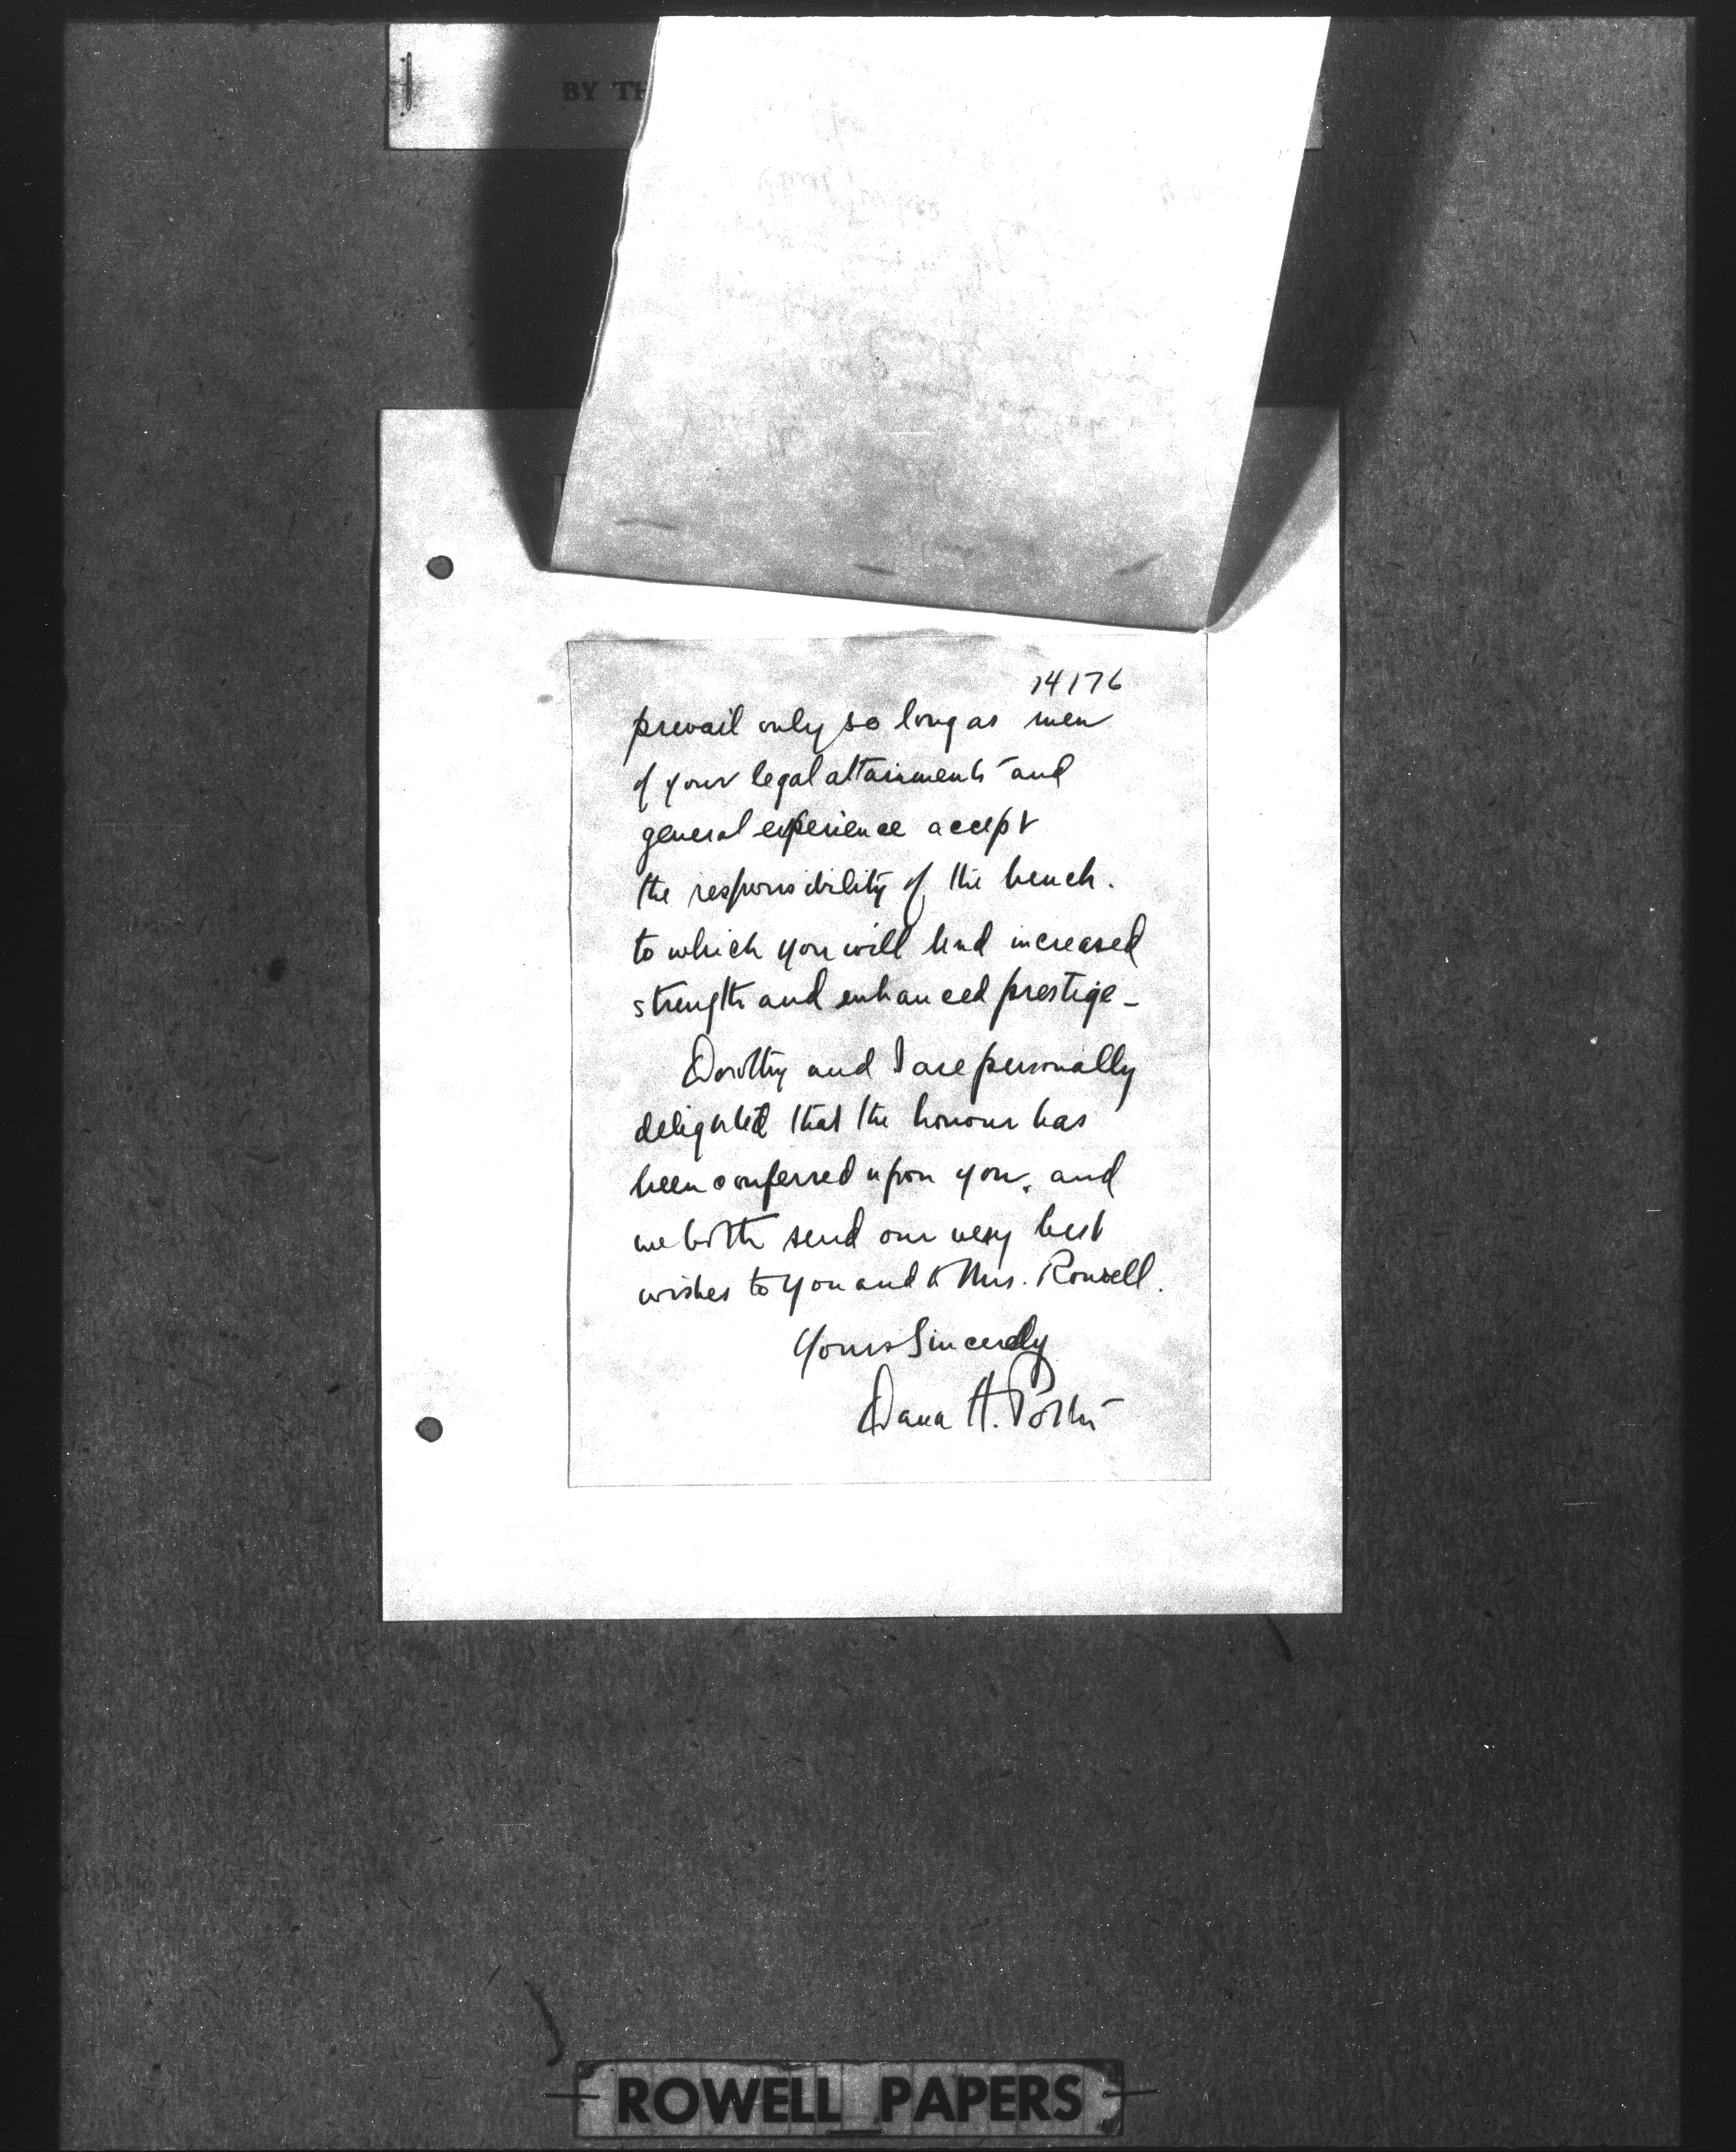 BY TH
14176
prevail only so long as men
of your legal attainments and
general experience accept
the responsibility of the bench.
to which you will lend increased
strength and enhanced prestige -
Dorothy and I are personally
delighted that the honour has
been conferred upon you, and
we both send our very best
wishes to you and to Mrs. Rowell.
Yours Sincerely
Dana H. Porter
ROWELL PAPERS